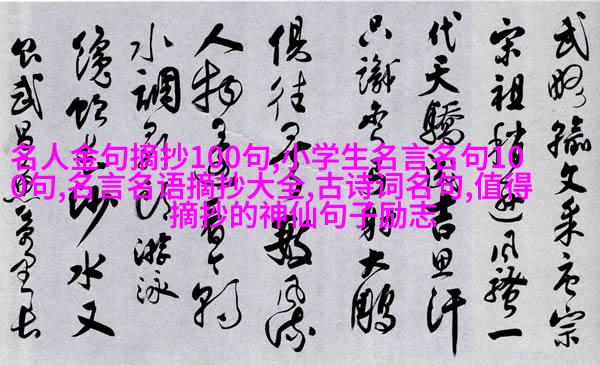 名人金句摘抄100句,小学生名言名句10
0句,名言名语摘抄大全,古诗词名句,值得
摘抄的神仙句子励志
武略輸文采唐宗
宋祖稍逊风骚一
代天驕成吉思汗
只識弯弓射大鵰
俱往矣数风流
人物还看今朝
水調歌头游泳
长沙水又
食武昌鱼万里长